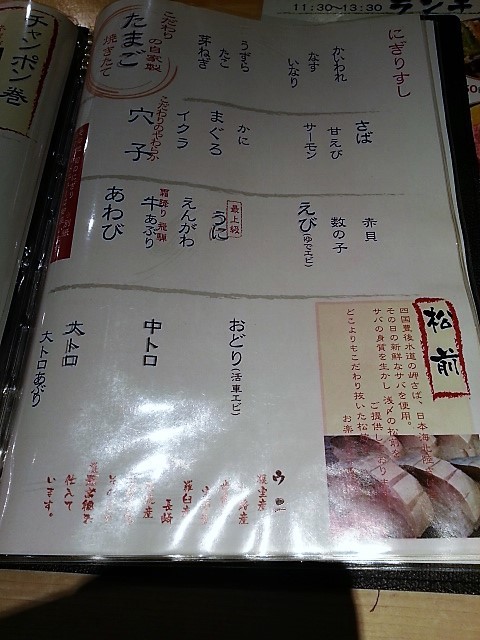 11:30~13:30
ランチ
チャンポン巻
にぎりすし
かいわれ
なす
いなり
うずら
たこ
芽ねぎ
こだわり
の自家製
たまご
焼きたて
さば
甘えび
サーモン
かに
まぐろ
イクラ
こだわりのやわらか
穴子
赤貝
数の子
えび(ゆでエビ)
最上級
うに
えんがわ
霜降り 飛騨
牛あぶり
あわび
おどり(活車エビ)
中トロ
大トロ
大トロあぶり
松前
四国豊後水道の岬さば、日本海北陸
その日の新鮮なサバを使用。
サバの身質を生かし 浅〆の松前を
ご提供し
どこよりもこだわり抜いた松
お楽
長崎
仕入て
います。